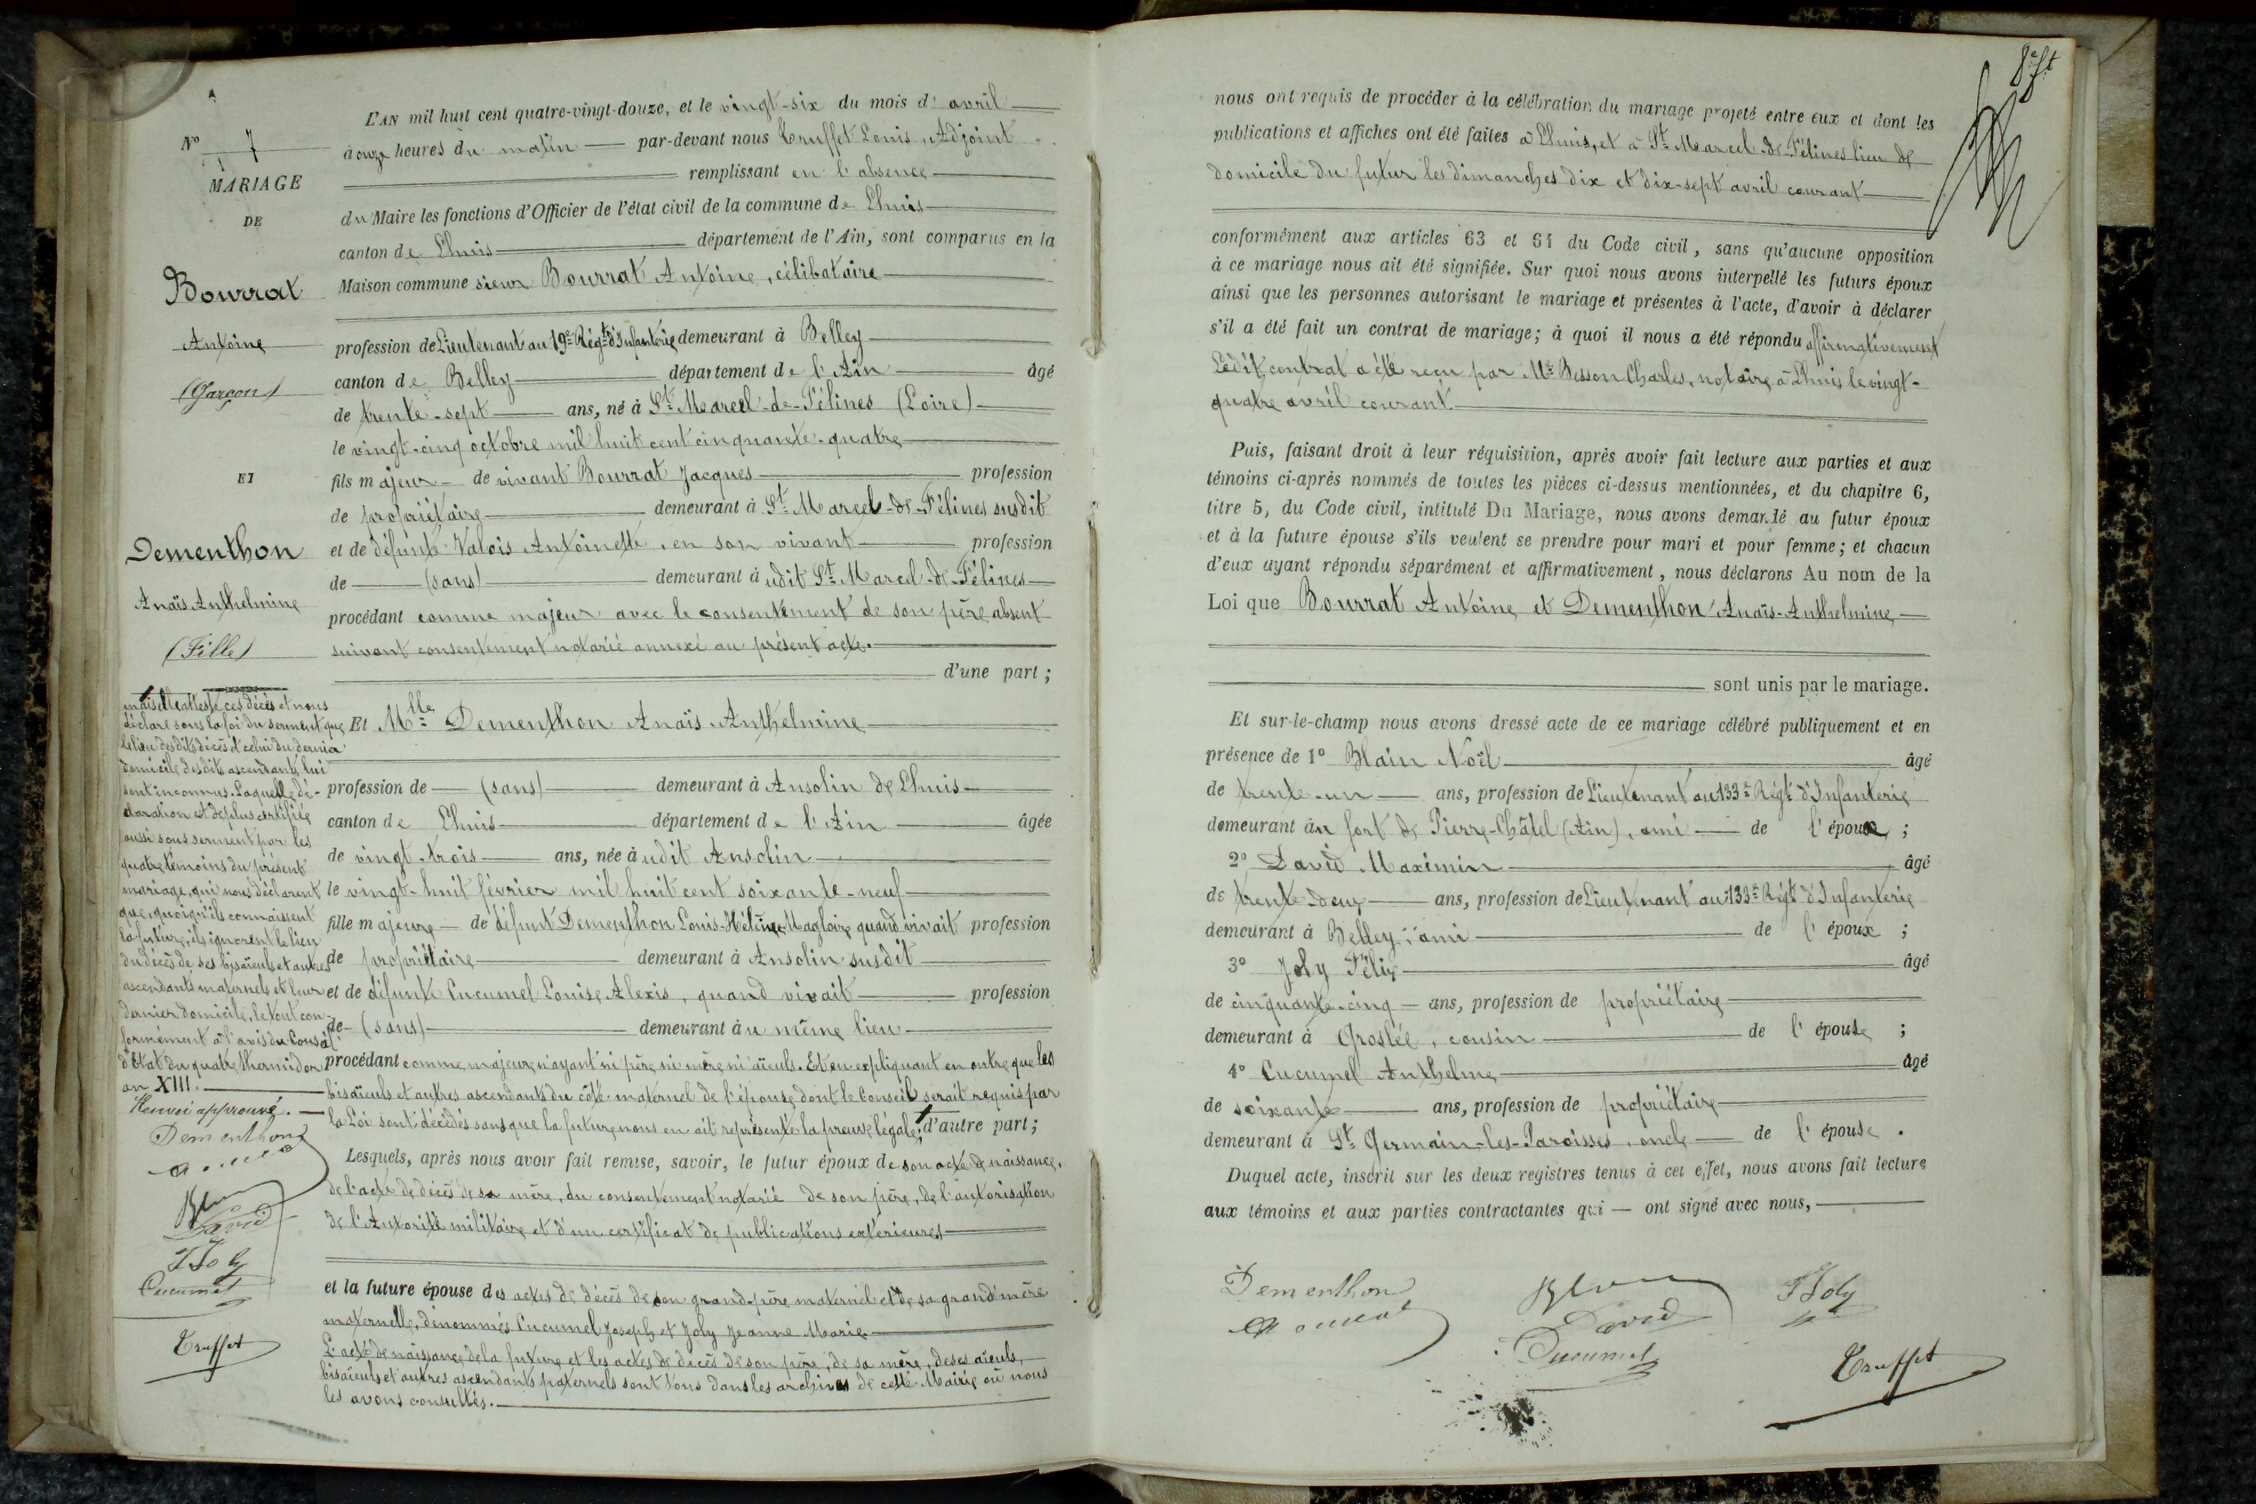 N° 7
MARIAGE
DE
Bourrat
Antoine
(Garçon)
ET
Dementhon
Anaïs Anthelmine
(Fille)
mais elle atteste ces décès et nous
déclare sous la foi du serment que
le lieu desdits décès et celui du dernier
domicile desdits ascendants lui
sont inconnus. Laquelle dé-
claration est de plus certifiée
aussi sous serment par les
quatre témoins du présent
mariage, qui nous déclarent
que, quoiqu'ils connaissent
la future, ils ignorent le lieu
du décès de ses bisaïeuls et autres
ascendants maternels et leur
dernier domicile, le tout con-
formément à l'avis du Conseil
d'Etat du quatre thermidor
an XIII.
Renvoi approuvé.
Dementhon
Blain
David
F Joly
Cucumel
Truffet
L'AN mil huit cent quatre-vingt-douze, et le vingt-six du mois d' avril
à onze heures du matin par-devant nous Truffet Louis, Adjoint
remplissant en l'absence
du Maire les fonctions d'Officier de l'état civil de la commune de Lhuis
canton de Lhuis département de l'Ain, sont comparus en la
Maison commune sieur Bourrat Antoine, célibataire
profession de Lieutenant au 19e Régt d'Infanterie demeurant à Belley
canton de Belley département de l'Ain âgé
de trente-sept ans, né à St Marcel-de-Félines (Loire)
le vingt-cinq octobre mil huit cent cinquante-quatre
fils majeur de vivant Bourrat Jacques profession
de propriétaire demeurant à St Marcel-de-Félines susdit
et de défunte Valois Antoinette, en son vivant profession
de (sans) demeurant à udit St Marcel-de-Félines
procédant comme majeur avec le consentement de son père, absent
suivant consentement notarié annexé au présent acte.
d'une part ;
Et Mlle Dementhon Anaïs Anthelmine
profession de (sans) demeurant à Ansolin de Lhuis
canton de Lhuis département de l'Ain âgée
de vingt-trois ans, née à udit Ansolin
le vingt-huit février mil huit cent soixante-neuf
fille majeure de défunt Dementhon Louis-Hélène-Magloire quand vivait profession
de propriétaire demeurant à Ansolin susdit
et de défunte Cucumel Louise Alexis, quand vivait profession
de (sans) demeurant àu même lieu
procédant comme majeure n'ayant ni père ni mère ni aïeuls. Et en expliquant en outre que les
bisaïeuls et autres ascendants du côté maternel de l'épouse dont le Conseil serait requis par
la Loi sont décédés sans que la future nous en ait représenté la preuve légale; d'autre part ;
Lesquels, après nous avoir fait remise, savoir, le futur époux de son acte de naissance,
de l'acte de décès de sa mère, du consentement notarié de son père, de l'autorisation
de l'Autorité militaire et d'un certificat de publications extérieures
et la future épouse des actes de décès de son grand-père maternel et de sa grand'mère
maternelle, dénommés Cucumel Joseph et Joly Jeanne Marie
L'acte de naissance de la future et les actes de décès de son père, de sa mère, de ses aïeuls,
bisaïeuls et autres ascendants paternels sont tous dans les archives de cette Mairie où nous
les avons consultés.
nous ont requis de procéder à la célébration du mariage projeté entre eux et dont les
publications et affiches ont été faites à Lhuis, et à St Marcel-de-Félines lieu de
domicile du futur les dimanches dix et dix-sept avril courant
conformément aux articles 63 et 64 du Code civil, sans qu'aucune opposition
à ce mariage nous ait été signifiée. Sur quoi nous avons interpellé les futurs époux
ainsi que les personnes autorisant le mariage et présentes à l'acte, d'avoir à déclarer
s'il a été fait un contrat de mariage ; à quoi il nous a été répondu affirmativement
Ledit contrat a été reçu par Me Besson Charles, notaire à Lhuis le vingt-
quatre avril courant.
Puis, faisant droit à leur réquisition, après avoir fait lecture aux parties et aux
témoins ci-après nommés de toutes les pièces ci-dessus mentionnées, et du chapitre 6,
titre 5, du Code civil, intitulé Du Mariage, nous avons demandé au futur époux
et à la future épouse s'ils veulent se prendre pour mari et pour femme ; et chacun
d'eux ayant répondu séparément et affirmativement, nous déclarons Au nom de la
Loi que Bourrat Antoine et Dementhon Anaïs-Anthelmine
sont unis par le mariage.
Et sur-le-champ nous avons dressé acte de ce mariage célébré publiquement et en
présence de 1° Blain Noël âgé
de trente-un ans, profession de Lieutenant au 133e Régt d'Infanterie
demeurant àu fort de Pierre-Châtel (Ain), ami de l'époux ;
2° David Maximin âgé
de trente-deux ans, profession de Lieutenant au 133e Régt d'Infanterie
demeurant à Belley, ami de l'époux ;
3° Joly Félix âgé
de cinquante-cinq ans, profession de propriétaire
demeurant à Groslée, cousin de l'épouse ;
4° Cucumel Anthelme âgé
de soixante ans, profession de propriétaire
demeurant à St Germain-les-Paroisses, oncle de l'épouse .
Duquel acte, inscrit sur les deux registres tenus à cet effet, nous avons fait lecture
aux témoins et aux parties contractantes qui — ont signé avec nous,
Dementhon
Blain
F Joly
David
Cucumel
Truffet